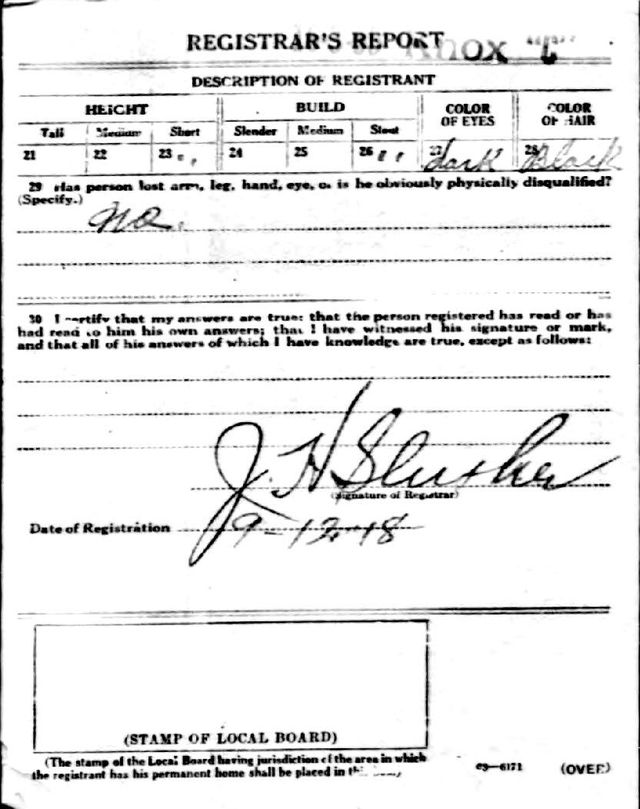 REGISTRAR'S REPORT Knox "C"
DESCRIPTION OF REGISTRANT
HEIGHT BUILD COLOR OF EYES COLOR OF HAIR
Tall Medium Short Slender Medium Stout
21 22 23 " 24 25 26 " 27 dark 28 Black
29 Has person lost arm, leg, hand, eye, or is he obviously physically disqualified?
(Specify.)
no.
30 I certify that my answers are true; that the person registered has read or has
had read to him his own answers; that I have witnessed his signature or mark,
and that all of his answers of which I have knowledge are true, except as follows:
J. H Slusher
(Signature of Registrar)
Date of Registration 9-12-18
(STAMP OF LOCAL BOARD)
(The stamp of the Local Board having jurisdiction of the area in which
the registrant has his permanent home shall be placed in
03—6171 (OVER)